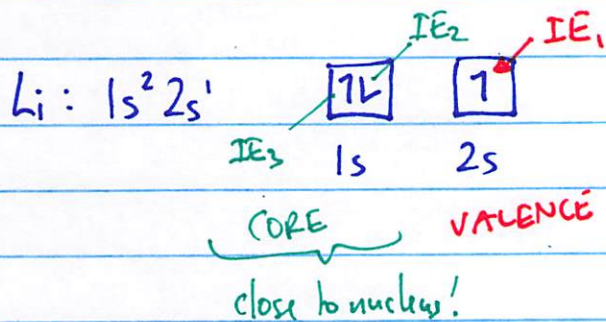 IE₂ IE₁
Li : 1s² 2s¹ 1L 1
IE₃ 1s 2s
CORE VALENCE
close to nucleus!